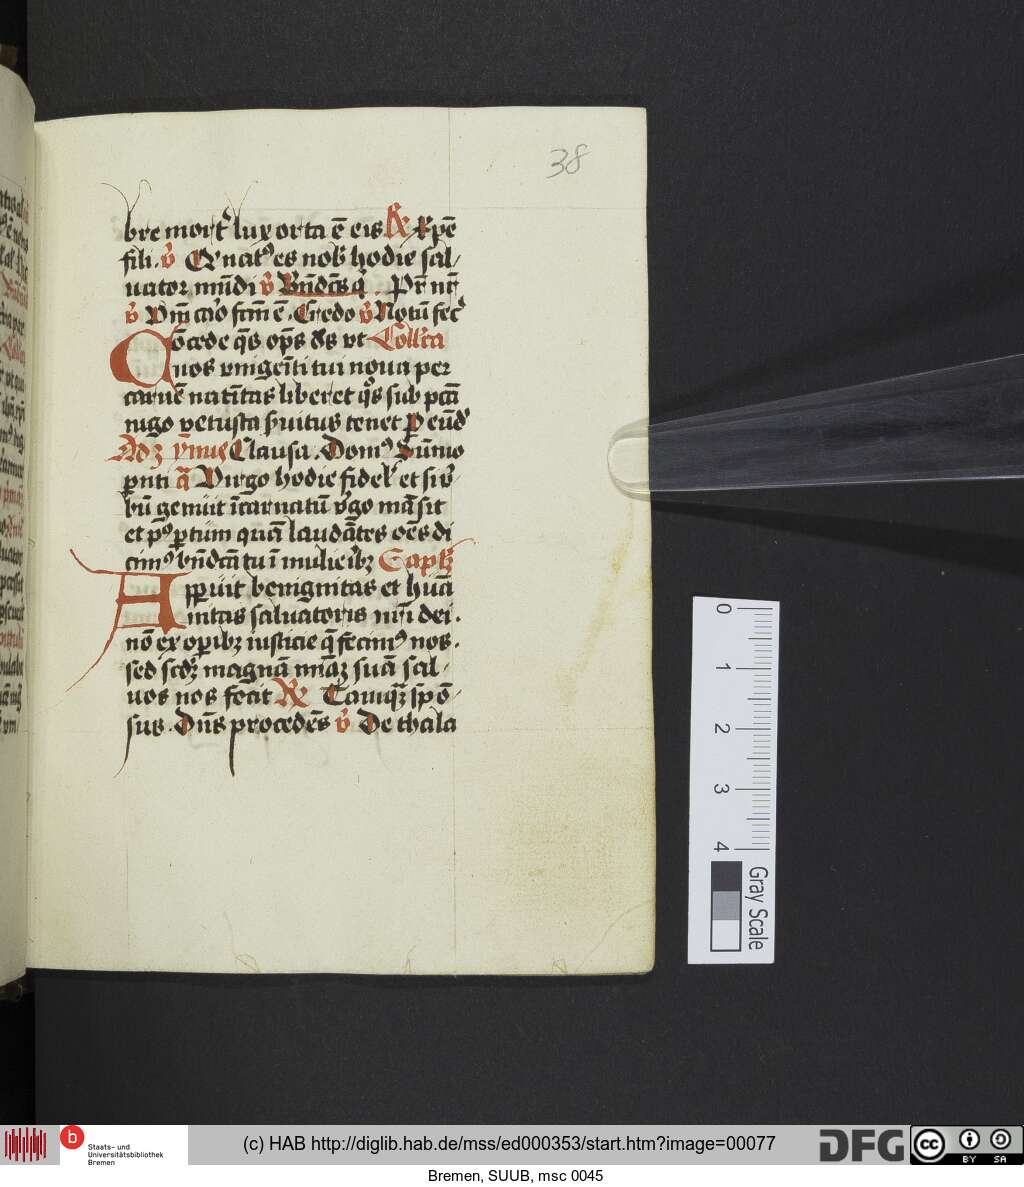 38
bre mort᷎ lux orta ē eis R xpe
fili. v̉ Q nat⁹ es nob hodie sal/
uator mūdi v̉ Bn̄dc̄s q̉ Pr̄ nr̄
v̉ Vm̄ caro fcm̄ ē. Credo v̉ Notū fec
Cōcede q̄s op̄s ds vt Coll'cta
nos vnigeīti tui noua per
carnē natiītas liberet q̉s sub pcc̄i
iugo vetusta s̉uitus tenet P eūd
Ad ꝫ ymn⁹ Clausa. Dom⁹
pn̄ti a Virgo hodie fidel' et si v̉
bū genuit īcarnatū v̉go māsit
et p⁹ ꝑtum quā laudātes oēs di
cim⁹ bn̄dcā tu ī mulierībꝫ
Apparuit benignitas et huā
nitas saluatoris nr̄i dei.
nō ex oꝑibꝫ iusticie q̄ fecim⁹ nos.
sed scdꝫ magnā mīaꝫ suā sal/
uos nos fecit R Tamqꝫ spō/
sus. Dn̄s procedēs v̉ De thala
0
1
2
3
4
Gray Scale
b Staats- und
Universitätsbibliothek
Bremen
(c) HAB http://diglib.hab.de/mss/ed000353/start.htm?image=00077
DFG
cc BY SA
Bremen, SUUB, msc 0045